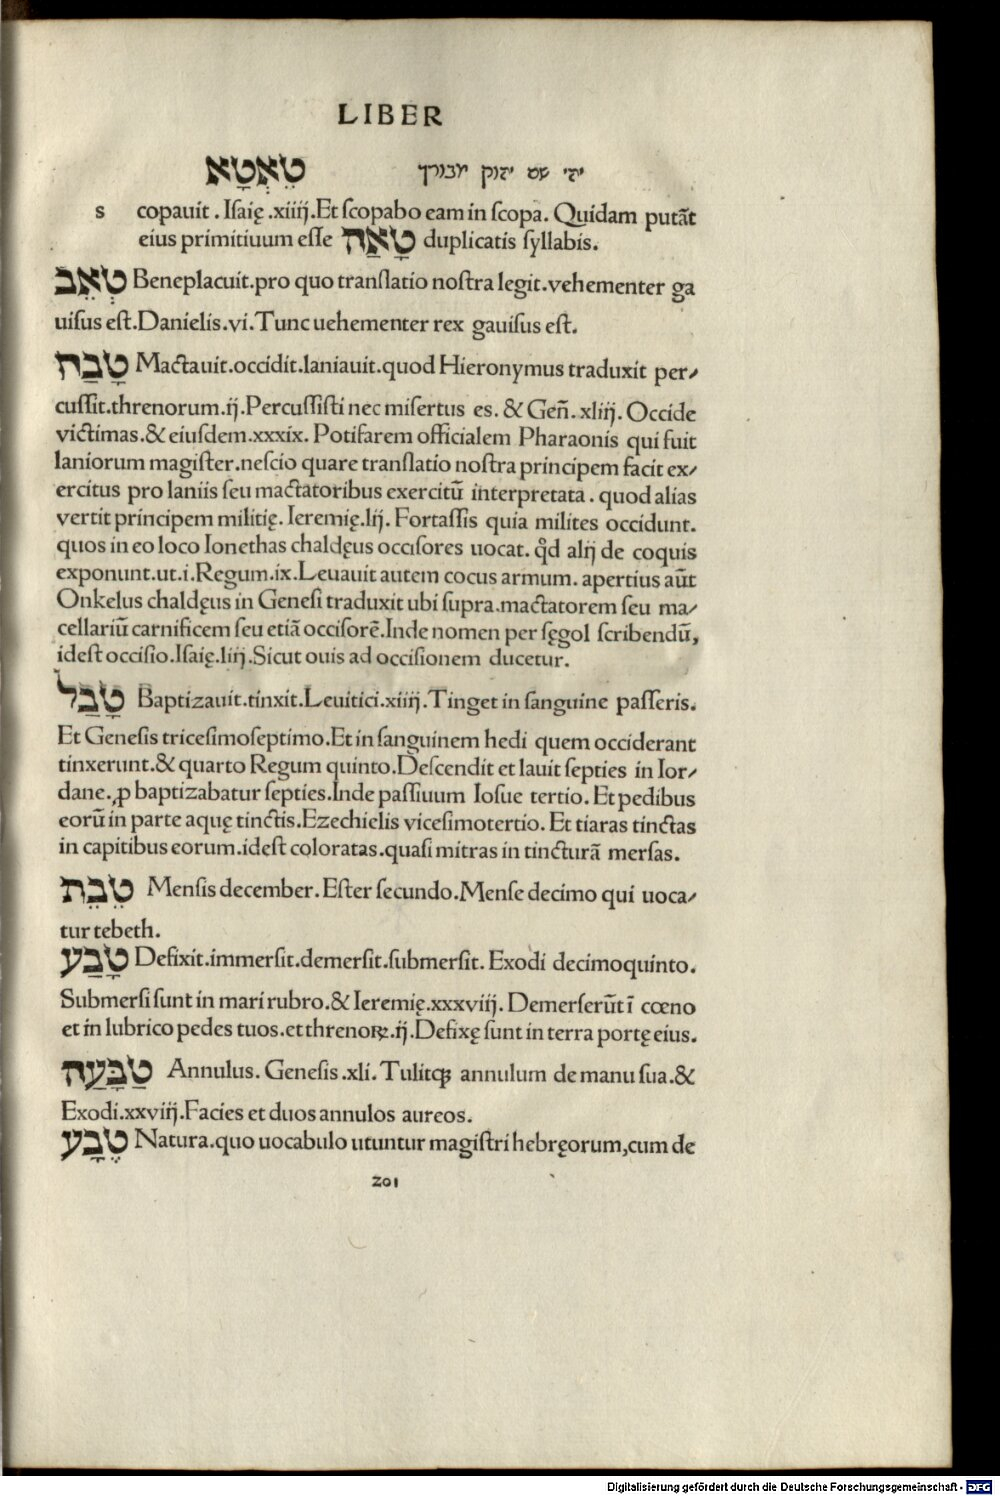 LIBER
טֵאְטָא יהי שם יהוה מבורך
s copauit . Iſaię .xiiij.Et ſcopabo eam in ſcopa. Quidam putãt
eius primitiuum eſſe טָאַה duplicatis ſyllabis.
טְאֵב Beneplacuit.pro quo tranſlatio noſtra legit.vehementer ga
uiſus eſt.Danielis.vi.Tunc uehementer rex gauiſus eſt.
טָבַח Mactauit.occidit.laniauit.quod Hieronymus traduxit per⸗
cuſſit.threnorum.ij.Percuſſiſti nec miſertus es. & Geñ. xliij. Occide
victimas.& eiuſdem.xxxix. Potifarem officialem Pharaonis qui fuit
laniorum magiſter.neſcio quare tranſlatio noſtra principem facit ex⸗
ercitus pro laniis ſeu mactatoribus exercitũ interpretata . quod alias
vertit principem militię. Ieremię.lij. Fortaſſis quia milites occidunt.
quos in eo loco Ionethas chaldęus occiſores uocat. qd̃ alij de coquis
exponunt.ut.i.Regum.ix.Leuauit autem cocus armum. apertius aũt
Onkelus chaldęus in Geneſi traduxit ubi ſupra.mactatorem ſeu ma⸗
cellariũ carnificem ſeu etiã occiſorẽ.Inde nomen per ſęgol ſcribendũ,
ideſt occiſio.Iſaię.liij.Sicut ouis ad occiſionem ducetur.
טָבַל Baptizauit.tinxit.Leuitici.xiiij.Tinget in ſanguine paſſeris.
Et Geneſis triceſimoſeptimo.Et in ſanguinem hedi quem occiderant
tinxerunt.& quarto Regum quinto.Deſcendit et lauit ſepties in Ior⸗
dane.ꝓ baptizabatur ſepties.Inde paſſiuum Ioſue tertio. Et pedibus
eorũ in parte aquę tinctis.Ezechielis viceſimotertio. Et tiaras tinctas
in capitibus eorum.ideſt coloratas.quaſi mitras in tincturã merſas.
טֵבֵת Menſis december. Eſter ſecundo.Menſe decimo qui uoca⸗
tur tebeth.
טָבַע Defixit.immerſit.demerſit.ſubmerſit. Exodi decimoquinto.
Submerſi ſunt in mari rubro.& Ieremię.xxxviij. Demerſerũt ĩ cœno
et in lubrico pedes tuos.et threnoꝝ.ij.Defixę ſunt in terra portę eius.
טַבָּעַה Annulus. Geneſis .xli. Tulitqꝫ annulum de manu ſua.&
Exodi.xxviij.Facies et duos annulos aureos.
טֶבָע Natura.quo uocabulo utuntur magiſtri hebręorum,cum de
201
Digitalisierung gefördert durch die Deutsche Forschungsgemeinschaft - DFG